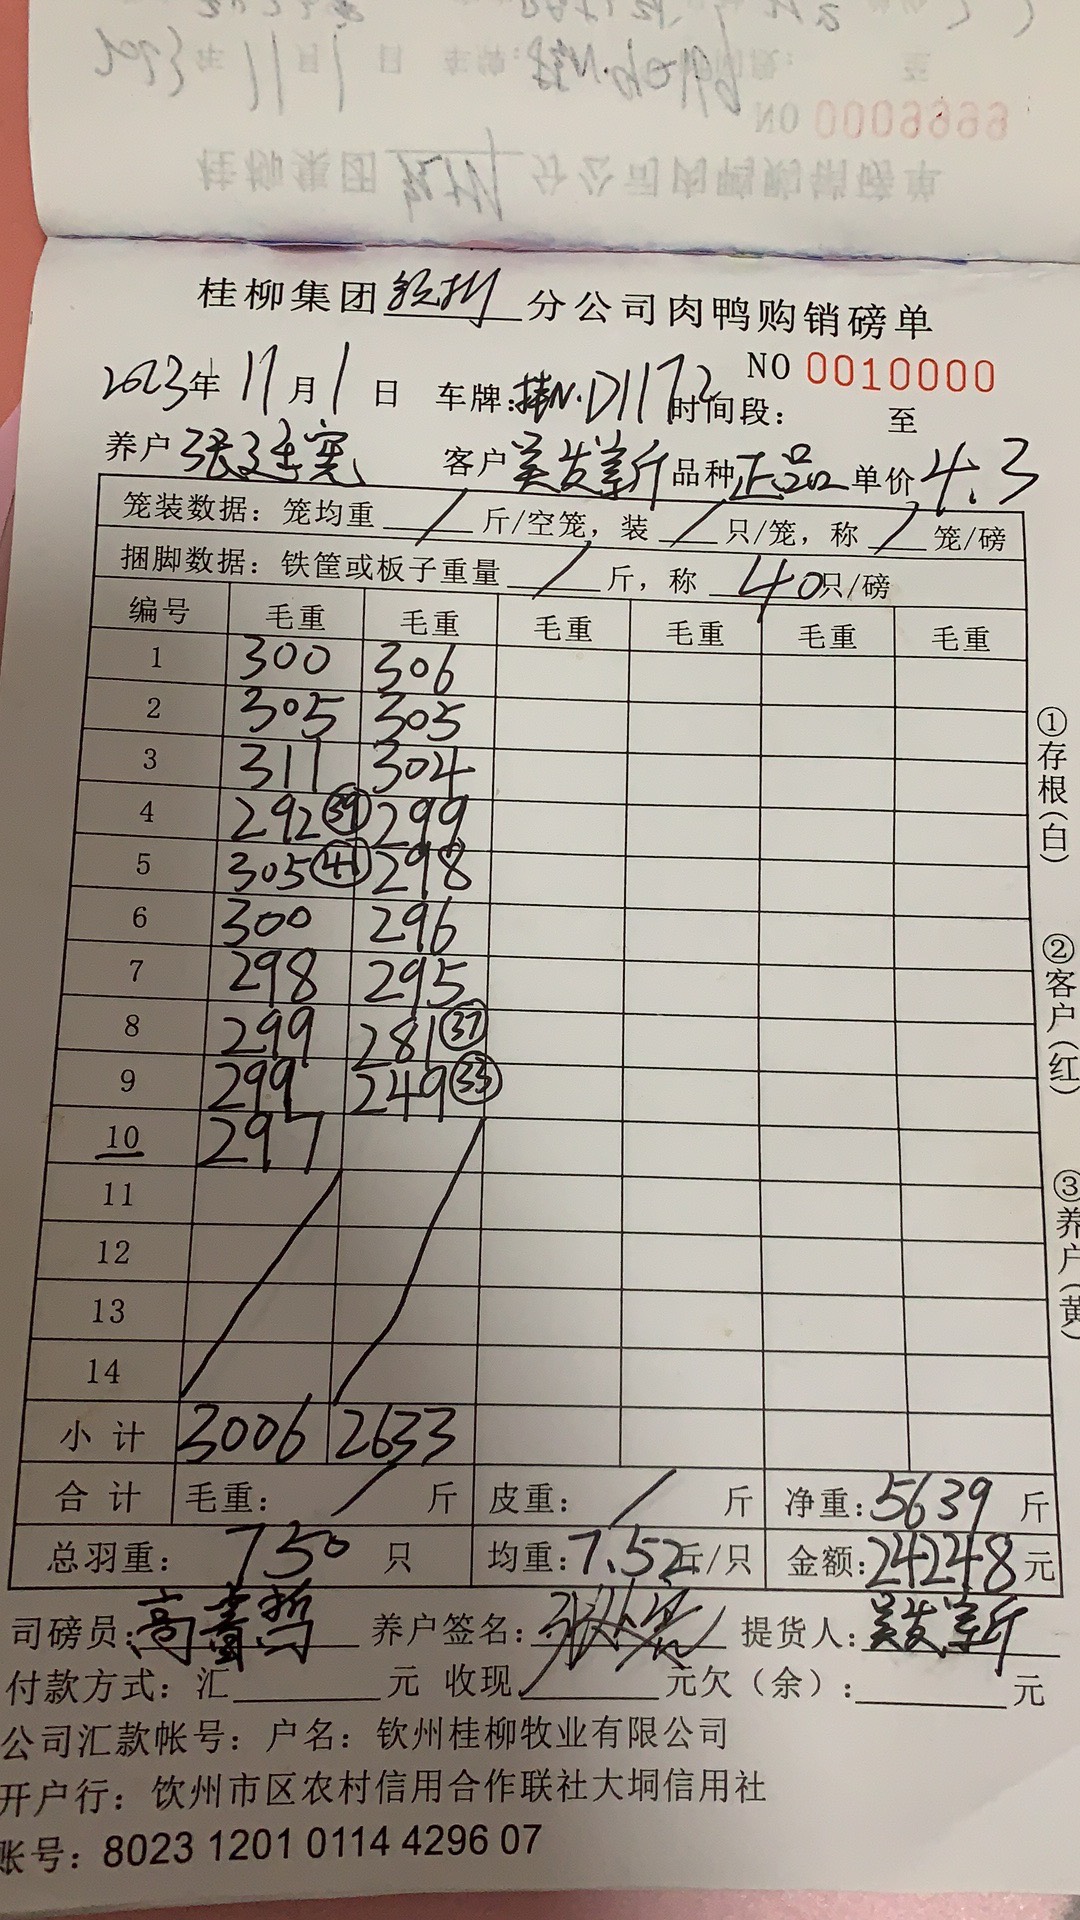 桂柳集团钦州分公司肉鸭购销磅单
NO 0010000
2023年11月1日 车牌:桂N·D1172 时间段: 至
养户 张廷宪 客户 吴发新 品种 正品 单价 4.3
笼装数据:笼均重 / 斤/空笼,装 / 只/笼,称 / 笼/磅
捆脚数据:铁筐或板子重量 / 斤,称 40 只/磅
编号 毛重 毛重 毛重 毛重 毛重 毛重
1 300 306
2 305 305
3 311 304
4 292 (39) 299
5 305 (41) 298
6 300 296
7 298 295
8 299 281 (37)
9 299 249 (33)
10 297
11
12
13
14
小计 3006 2633
合计 毛重: / 斤 皮重: / 斤 净重:5639 斤
总羽重: 750 只 均重:7.52 斤/只 金额:24248元
司磅员: 养户签名: 提货人:吴发新
付款方式:汇 元 收现 元欠(余): 元
公司汇款帐号:户名:钦州桂柳牧业有限公司
开户行:钦州市区农村信用合作联社大垌信用社
账号:8023 1201 0114 4296 07
①存根(白)
②客户(红)
③养户(黄)